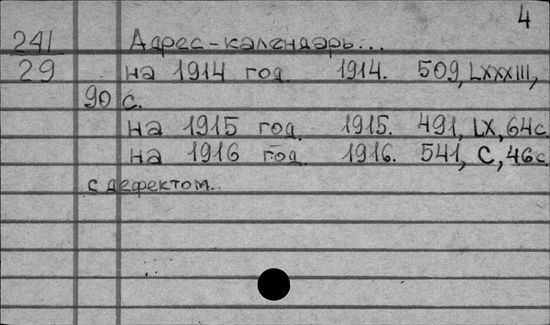 4
241 Адрес-календарь...
29 на 1914 год. 1914. 509, LXXXIII,
90 с.
на 1915 год. 1915. 491, LX, 64с.
на 1916 год. 1916. 541, С, 46с.
с дефектом.